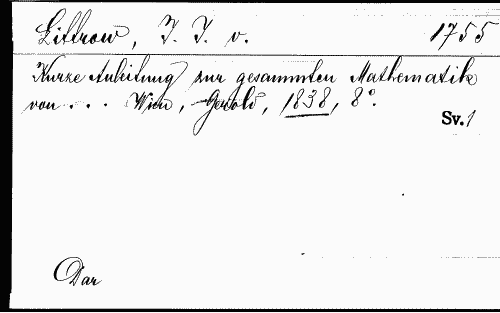 Littrow, J. J. v. 1755
Kurze Anleitung zur gesammten Mathematik
von . . . Wien, Gerold, 1838, 8°.
Sv. 1
Dar